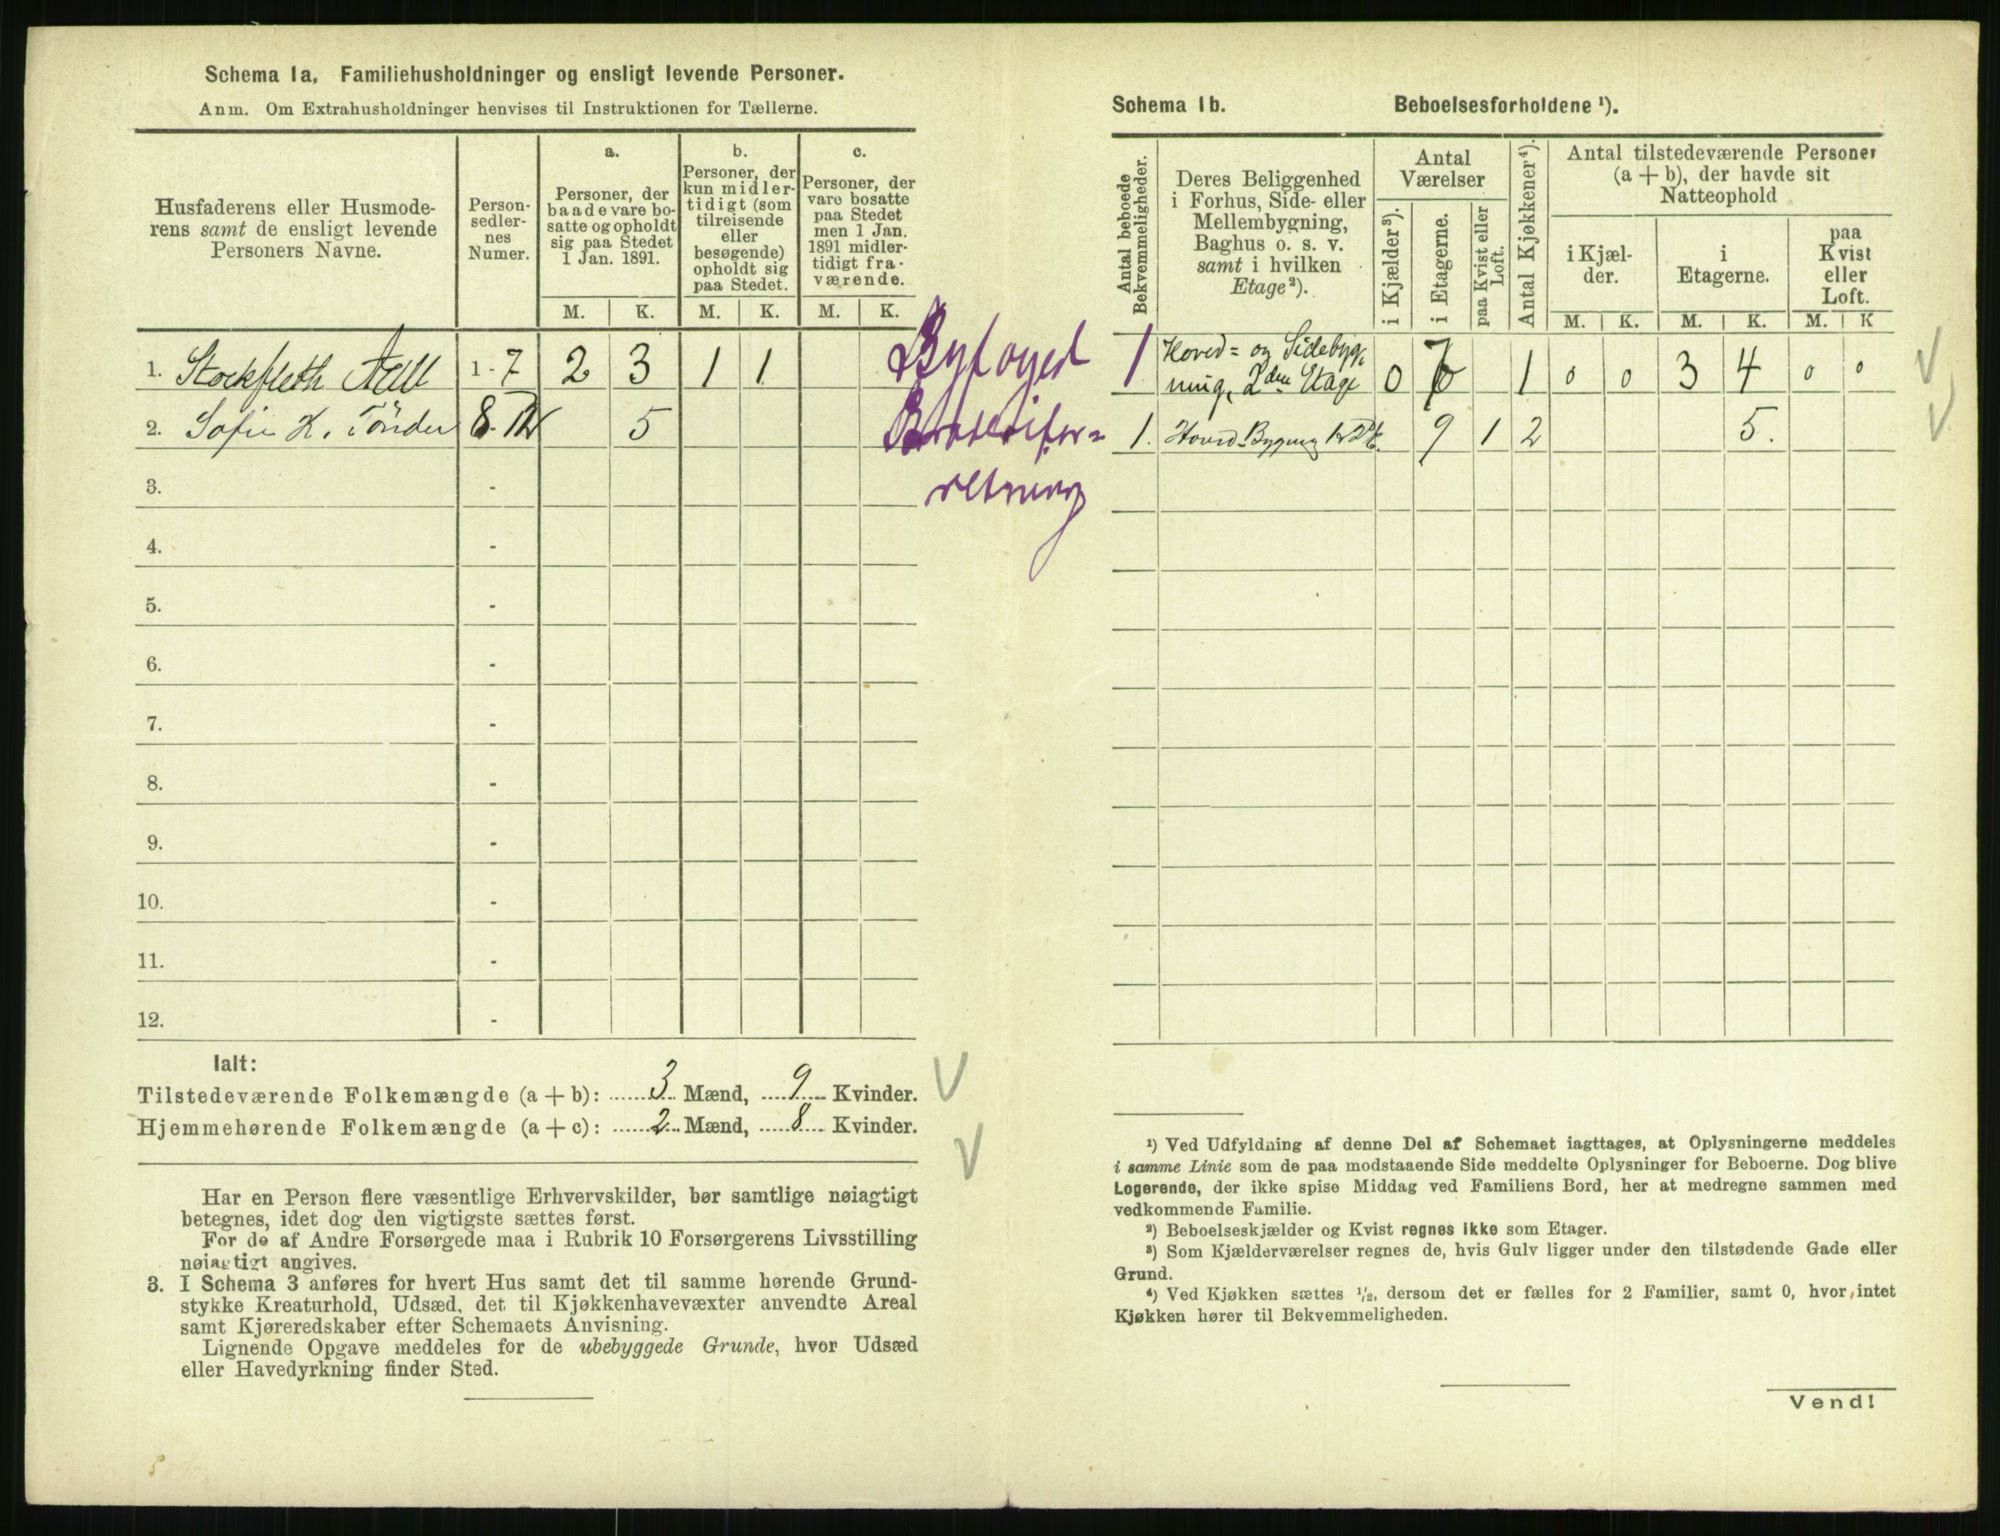 Schema 1a, Familiehusholdninger og ensligt levende Personer.
Anm. Om Extrahusholdninger henvises til Instruktionen for Tællerne.
Husfaderens eller Husmode-
rens samt de ensligt levende
Personers Navne.
Person-
sedler-
nes
Numer.
a.
Personer, der
baade vare bo-
satte og opholdt
sig paa Stedet
1 Jan. 1891.
b.
Personer, der
kun midler-
tidigt (som
tilreisende
eller
besøgende)
opholdt sig
paa Stedet.
c.
Personer, der
vare bosatte
paa Stedet
men 1 Jan.
1891 midler-
tidigt fra-
værende.
M. K. M. K. M. K.
1. Stockfleth Aall 1 - 7 2 3 1 1 Byfoged
2. Sofie K. Tönder 8 - 12 5
3. - retning
4. -
5. -
6. -
7. -
8. -
9. -
10. -
11. -
12. -
Ialt:
Tilstedeværende Folkemængde (a + b): 3 Mænd, 9 Kvinder.
Hjemmehørende Folkemængde (a + c): 2 Mænd, 8 Kvinder.
Har en Person flere væsentlige Erhvervskilder, bør samtlige nøiagtigt
betegnes, idet dog den vigtigste sættes først.
For de af Andre Forsørgede maa i Rubrik 10 Forsørgerens Livsstilling
nøiagtigt angives.
3. I Schema 3 anføres for hvert Hus samt det til samme hørende Grund-
stykke Kreaturhold, Udsæd, det til Kjøkkenhavevæxter anvendte Areal
samt Kjøreredskaber efter Schemaets Anvisning.
Lignende Opgave meddeles for de ubebyggede Grunde, hvor Udsæd
eller Havedyrkning finder Sted.
Schema 1b. Beboelsesforholdene ¹).
Antal beboede
Bekvemmeligheder.
Deres Beliggenhed
i Forhus, Side- eller
Mellembygning,
Baghus o. s. v.
samt i hvilken
Etage²).
Antal
Værelser
i Kjælder³).
i Etagerne.
paa Kvist eller
Loft.
Antal Kjøkkener⁴).
Antal tilstedeværende Personer
(a + b), der havde sit
Natteophold
i Kjæl-
der.
i
Etagerne.
paa
Kvist
eller
Loft.
M. K. M. K. M. K
1 Hoved= og Sidebyg-
ning, 2den Etage 0 7 1 0 0 3 4 0 0
1. Hoved-Bygning 9 1 2 5.
¹) Ved Udfyldning af denne Del af Schemaet iagttages, at Oplysningerne meddeles
i samme Linie som de paa modstaaende Side meddelte Oplysninger for Beboerne. Dog blive
Logerende, der ikke spise Middag ved Familiens Bord, her at medregne sammen med
vedkommende Familie.
²) Beboelseskjælder og Kvist regnes ikke som Etager.
³) Som Kjælderværelser regnes de, hvis Gulv ligger under den tilstødende Gade eller
Grund.
⁴) Ved Kjøkken sættes ½, dersom det er fælles for 2 Familier, samt 0, hvor intet
Kjøkken hører til Bekvemmeligheden.
Vend!